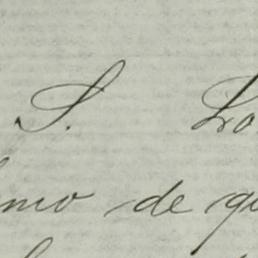 S. Lo
mo de qu